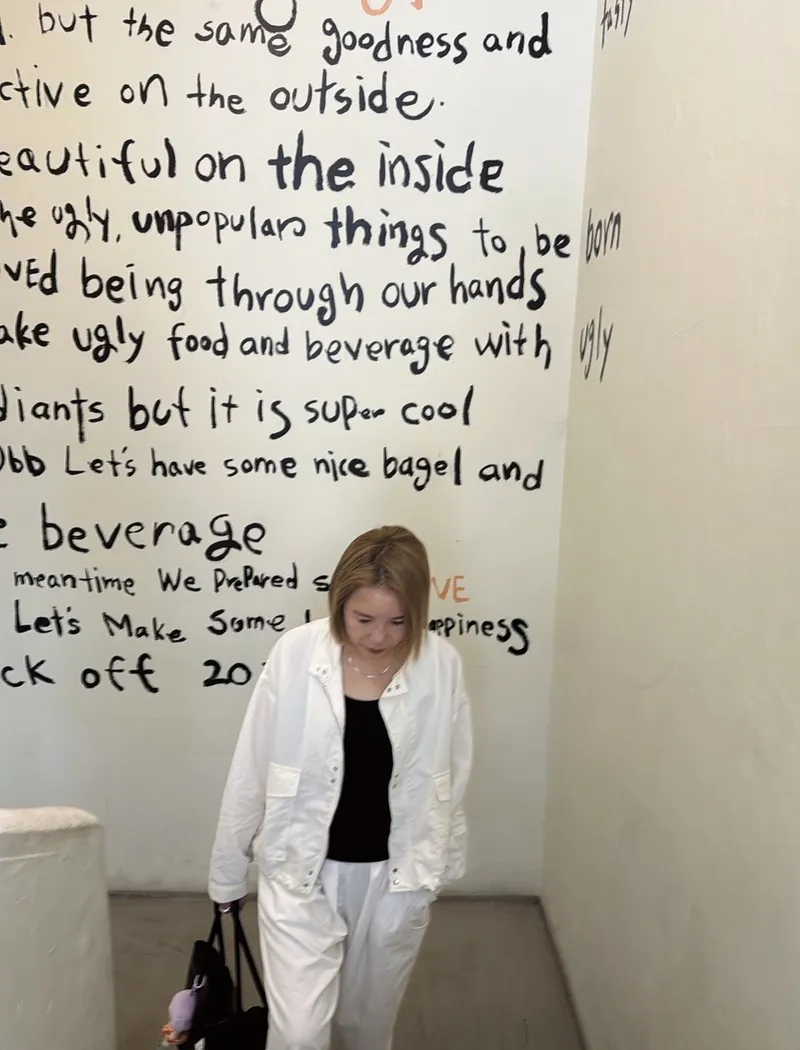 but the same goodness and
ctive on the outside.
eautiful on the inside
he ugly, unpopulars things to be born
VEd being through our hands
ake ugly food and beverage with ugly
diants but it is super cool
Obb Let's have some nice bagel and
beverage
meantime We PrePared s VE
Let's Make Some appiness
ck off 20